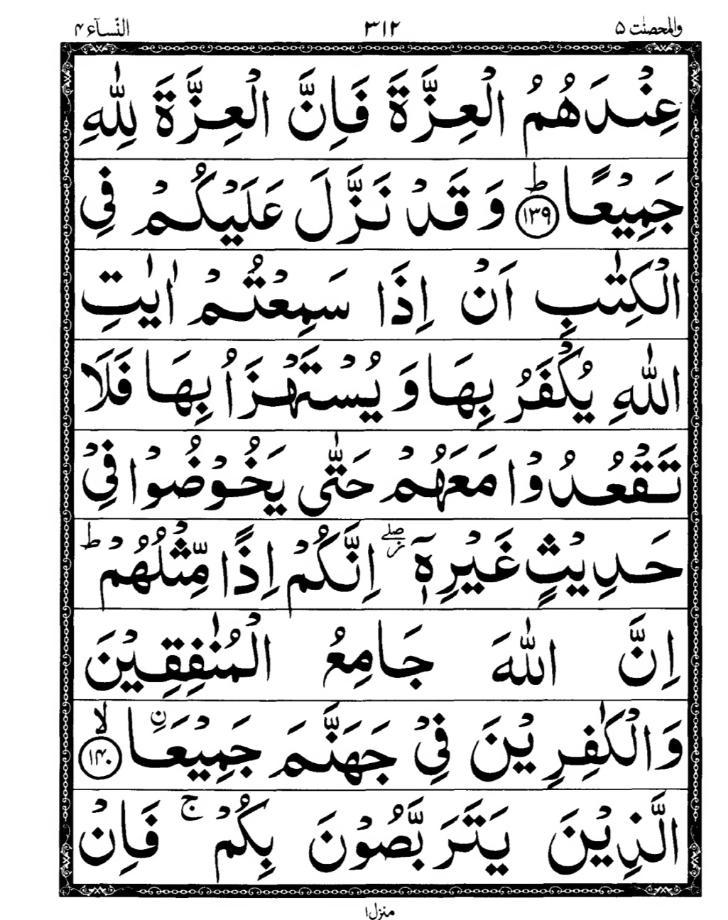 والمحصنٰت ۵ ۳۱۲ النّسآء ۴
عِنْدَهُمُ الْعِزَّةَ فَاِنَّ الْعِزَّةَ لِلّٰهِ
جَمِيْعًا ؕ ﴿۱۳۹﴾ وَ قَدْ نَزَّلَ عَلَيْكُمْ فِى
الْكِتٰبِ اَنْ اِذَا سَمِعْتُمْ اٰيٰتِ
اللّٰهِ يُكْفَرُ بِهَا وَ يُسْتَهْزَاُ بِهَا فَلَا
تَقْعُدُوْا مَعَهُمْ حَتّٰى يَخُوْضُوْا فِىْ
حَدِيْثٍ غَيْرِهٖۤ ۖ٘ اِنَّكُمْ اِذًا مِّثْلُهُمْ ؕ
اِنَّ اللّٰهَ جَامِعُ الْمُنٰفِقِيْنَ
وَالْكٰفِرِيْنَ فِىْ جَهَنَّمَ جَمِيْعَاۨ ۙ ﴿۱۴۰﴾
الَّذِيْنَ يَتَرَبَّصُوْنَ بِكُمْ ۚ فَاِنْ
منزل۱